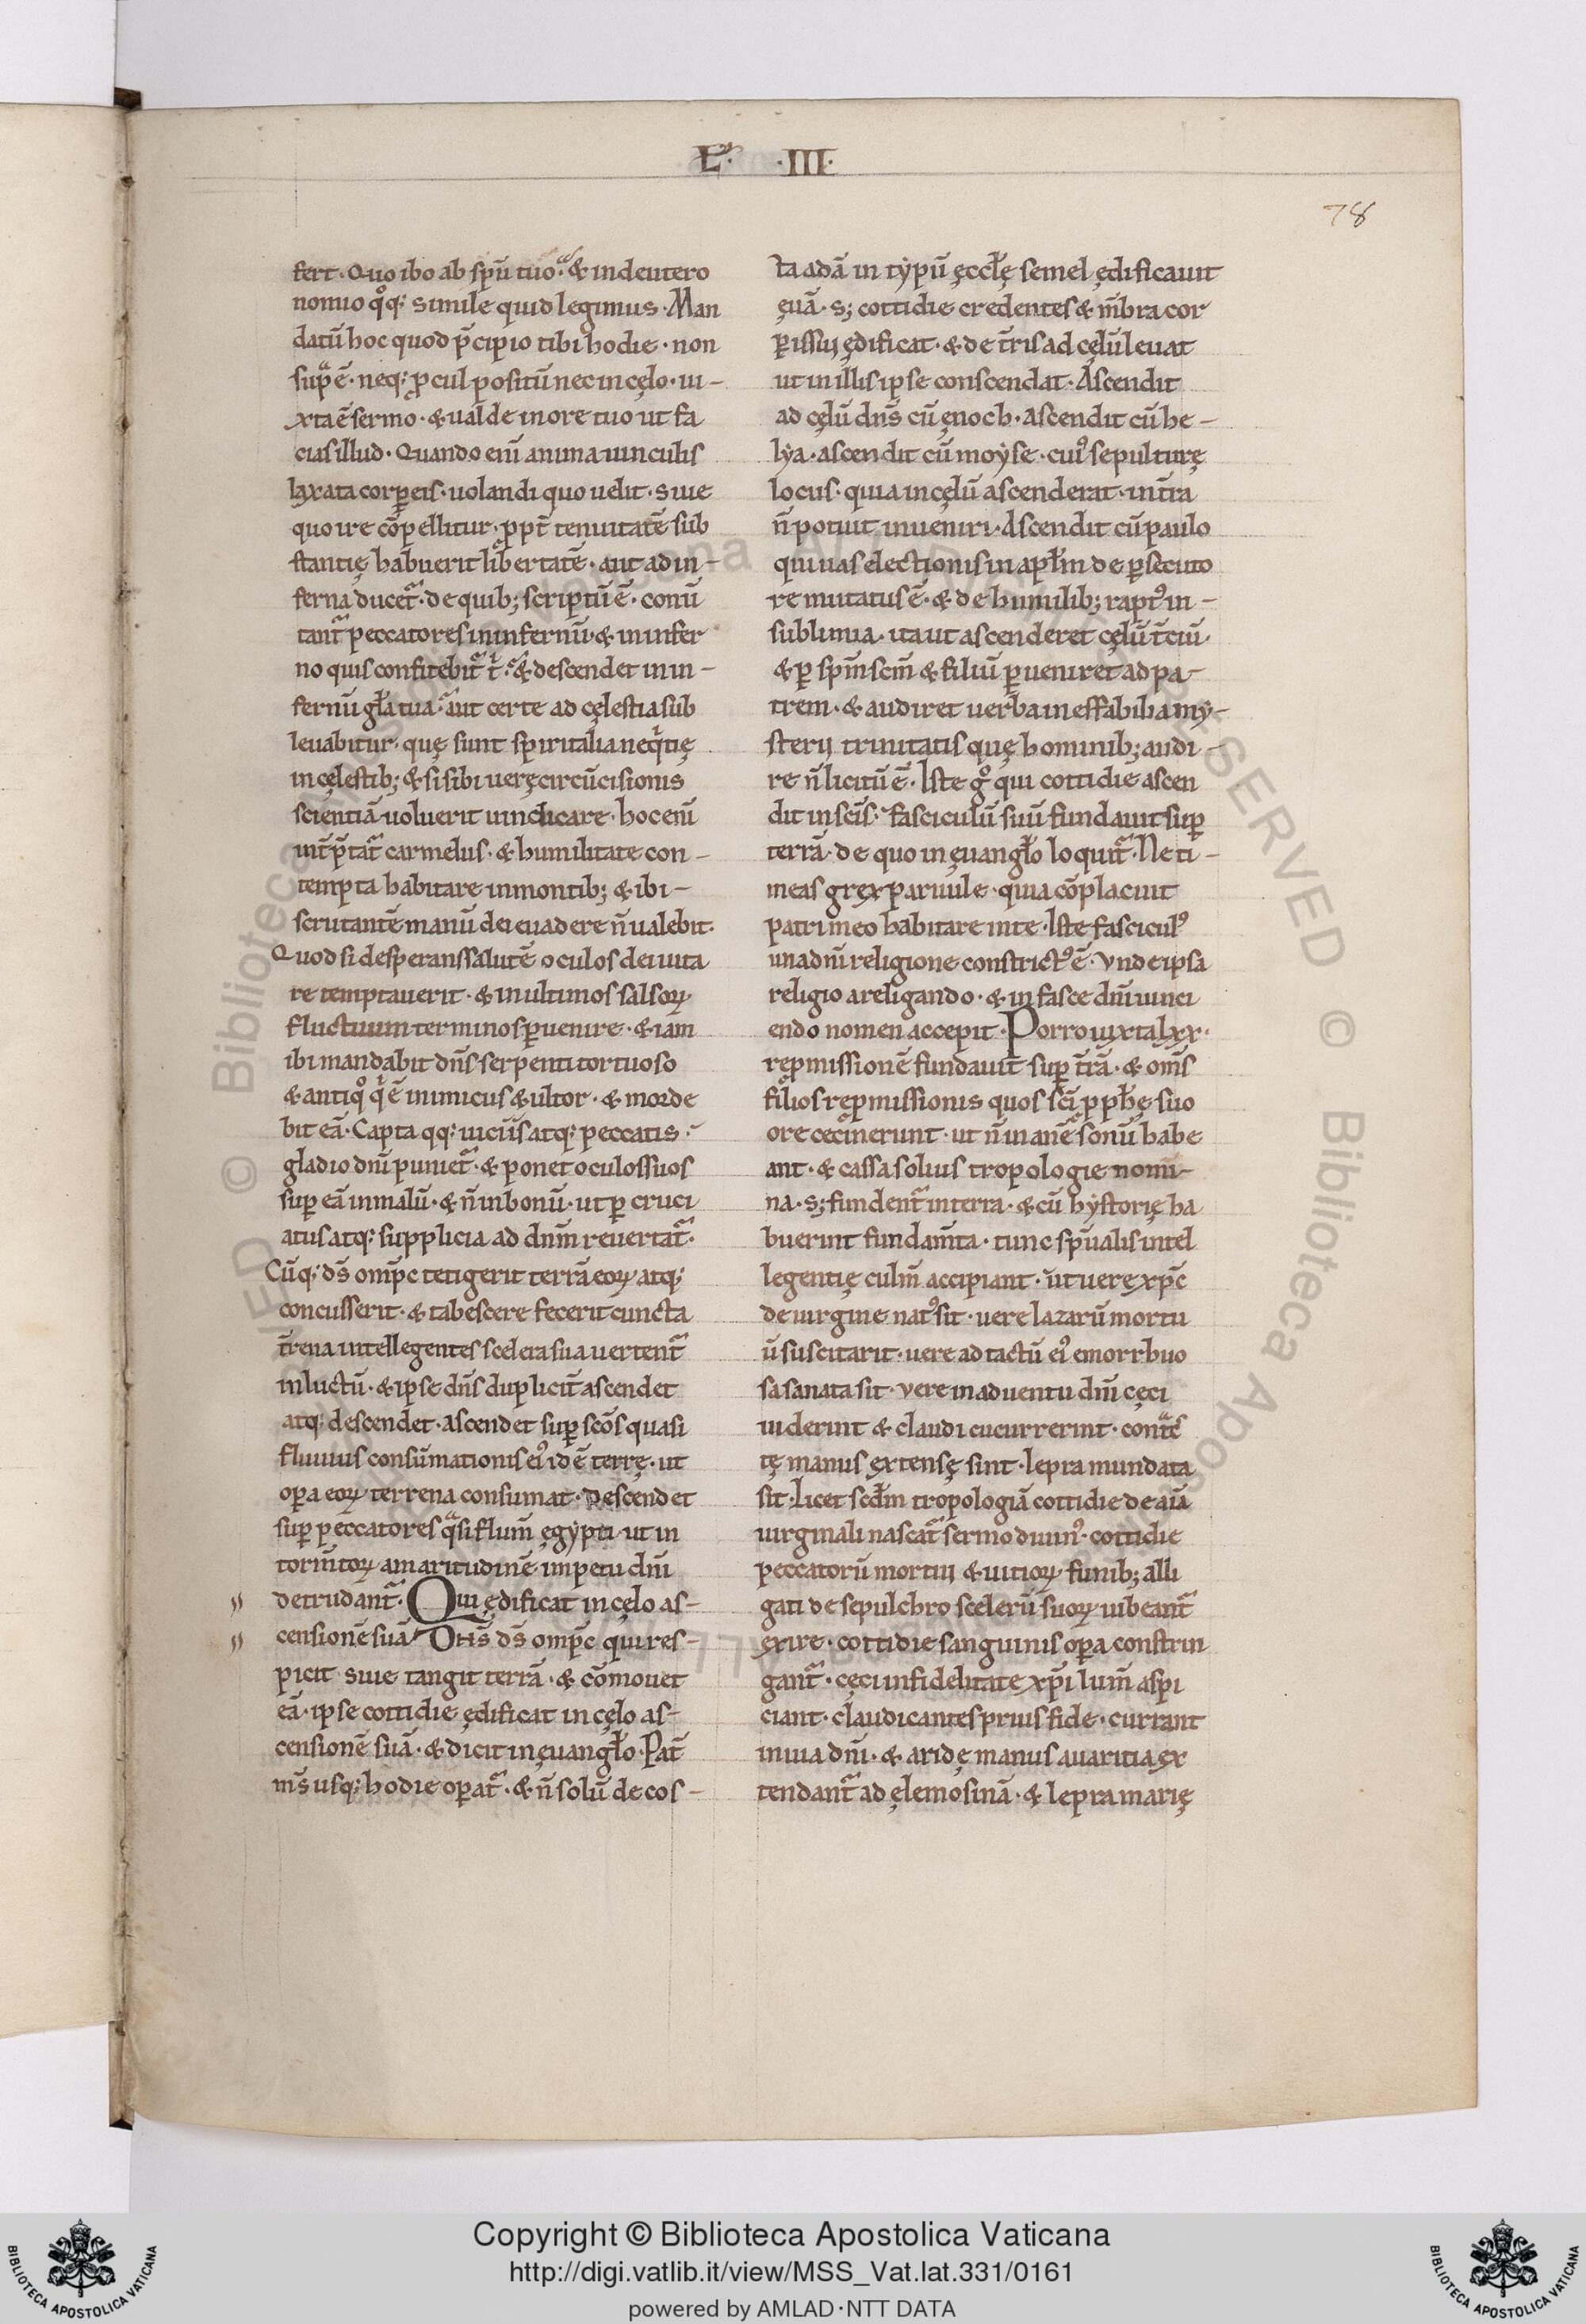 L. ·III·
78
fert. Quo ibo ab spū tuo? & in deutero
nomio qͦq; simile quid legimus. Man
datū hoc quod p̄cipio tibi hodie. non
sup̄ ē. neq; ꝓcul positū nec in cęlo. iu-
xta ē sermo. & ualde in ore tuo ut fa
cias illud. Quando enī anima uinculis
laxata corꝑeis. uolandi quo uelit. siue
quo ire cōpellitur. ꝓpt̄ tenuitatē sub
stantię habuerit libertatē. aut ad in-
ferna ducet᷑. de quib; scriptū ē. conū
tant᷑ peccatores in infernū. & in infer
no quis confitebit᷑ t'? & descendet in in-
fernū gl̄a tua. aut certe ad cęlestia sub
leuabitur. quę sunt spiritalia neq̇tię
in cęlestib; & si sibi uerę circūcisionis
scientiā uoluerit uindicare. hoc enī
int̄p̄tat᷑ carmelus. & humilitate con-
tempta habitare in montib; & ibi-
scrutantē manū dei euadere n̄ ualebit.
Quod si desperans salutē oculos dei uita
re temptauerit. & in ultimos salsoꝝ
fluctuum terminos ꝑuenire. & iam
ibi mandabit dn̄s serpenti tortuoso
& antiqͦ q̇ ē inimicus & ultor. & morde
bit eā. Capta qq; uiciis atq; peccatis.
gladio dn̄i puniet᷑. & ponet oculos suos
suꝑ eā in malū. & n̄ in bonū. ut ꝑ cruci
atus atq; supplicia ad dn̄m reuertat᷑.
Cūq; ds̄ omp̄c tetigerit terrā eoꝝ atq;
concusserit. & tabescere fecerit cuncta
t̄rena intellegentes scelera sua uertent᷑
in luctū. & ipse dn̄s duplicit̄ ascendet
atq; descendet. ascendet suꝑ sc̄os quasi
fluuius consūmationis ei᾽ id ē terrę. ut
oꝑa eoꝝ terrena consumat. Descendet
suꝑ peccatores qͣsi flum̄ ęgypti. ut in
torm̄toꝝ amaritudinē impetu dn̄i
detrudant᷑. Qui ędificat in cęlo as-
censionē suā. DNS̄ ds̄ omp̄c qui res-
picit siue tangit terrā. & cōmouet
eā. ipse cottidie ędificat in cęlo as-
censionē suā. & dicit in ęuangl̄o. Pat̄
m̄s usq; hodie oꝑat᷑. & n̄ solū de cos-
ta adā in typū ęccl̄ę semel ędificauit
ęuā. s; cottidie credentes & m̄bra cor
ꝑis sui ędificat. & de t̄ris ad cęlū leuat
ut in illis ipse conscendat. Ascendit
ad cęlū dn̄s cū ęnoch. ascendit cū he-
lya. ascendit cū moyse. cui᾽ sepulturę
locus. quia in cęlū ascenderat. in t̄ra
n̄ potuit inueniri. Ascendit cū paulo
qui uas electionis in apl̄m de ꝑsecuto
re mutatus ē. & de humilib; rapt᾽ in-
sublimia. ita ut ascenderet cęlū t̄ciū.
& ꝑ spm̄ scm̄ & filiū ꝑueniret ad pa-
trem. & audiret uerba ineffabilia my-
sterii trinitatis quę hominib; audi-
re n̄ licitū ē. Iste gͦ qui cottidie ascen
dit in scīs. fasciculū suū fundauit suꝑ
terrā. de quo in ęuangl̄o loquit᷑. Ne ti-
meas grex paruule. quia cōplacuit
patri meo habitare in te. Iste fascicul᾽
una dn̄i religione constrict᾽ ē. Vnde ipsa
religio a religando. & in fasce dn̄i uinci
endo nomen accepit. Porro iuxta lxx.
repmissionē fundauit suꝑ t̄rā. & om̄s
filios repmissionis quos scī pph̄ę suo
ore cecinerunt. ut n̄ inanē sonū habe
ant. & cassa solius tropologie nomi-
na. s; fundent᷑ in terra. & cū hystorię ha
buerint fundam̄ta. tunc sp̄ualis intel
legentię culm̄ accipiant. ut uere xp̄c
de uirgine nat᾽ sit. uere lazarū mortu
ū suscitarit. uere ad tactū ei᾽ emorrhuo
sa sanata sit. vere in aduentu dn̄i cęci
uiderint & claudi cucurrerint. contͣc
tę manus extensę sint. lepra mundata
sit. Licet scd̄m tropologiā cottidie de aīa
uirginali nascat᷑ sermo diuin᾽. cottidie
peccatorū mortui & uitioꝝ funib; alli
gati de sepulchro scelerū suoꝝ iubeant᷑
exire. cottidie sanguinis oꝑa constrin
gant᷑. cęci infidelitate xp̄i lum̄ aspi
ciant. claudicantes prius fide. currant
in uia dn̄i. & aridę manus auaritia ex
tendant᷑ ad ęlemosinā. & lepra marię
© Biblioteca Apostolica Vaticana ALL RIGHTS RESERVED
Copyright © Biblioteca Apostolica Vaticana
http://digi.vatlib.it/view/MSS_Vat.lat.331/0161
powered by AMLAD·NTT DATA
BIBLIOTECA APOSTOLICA VATICANA
BIBLIOTECA APOSTOLICA VATICANA